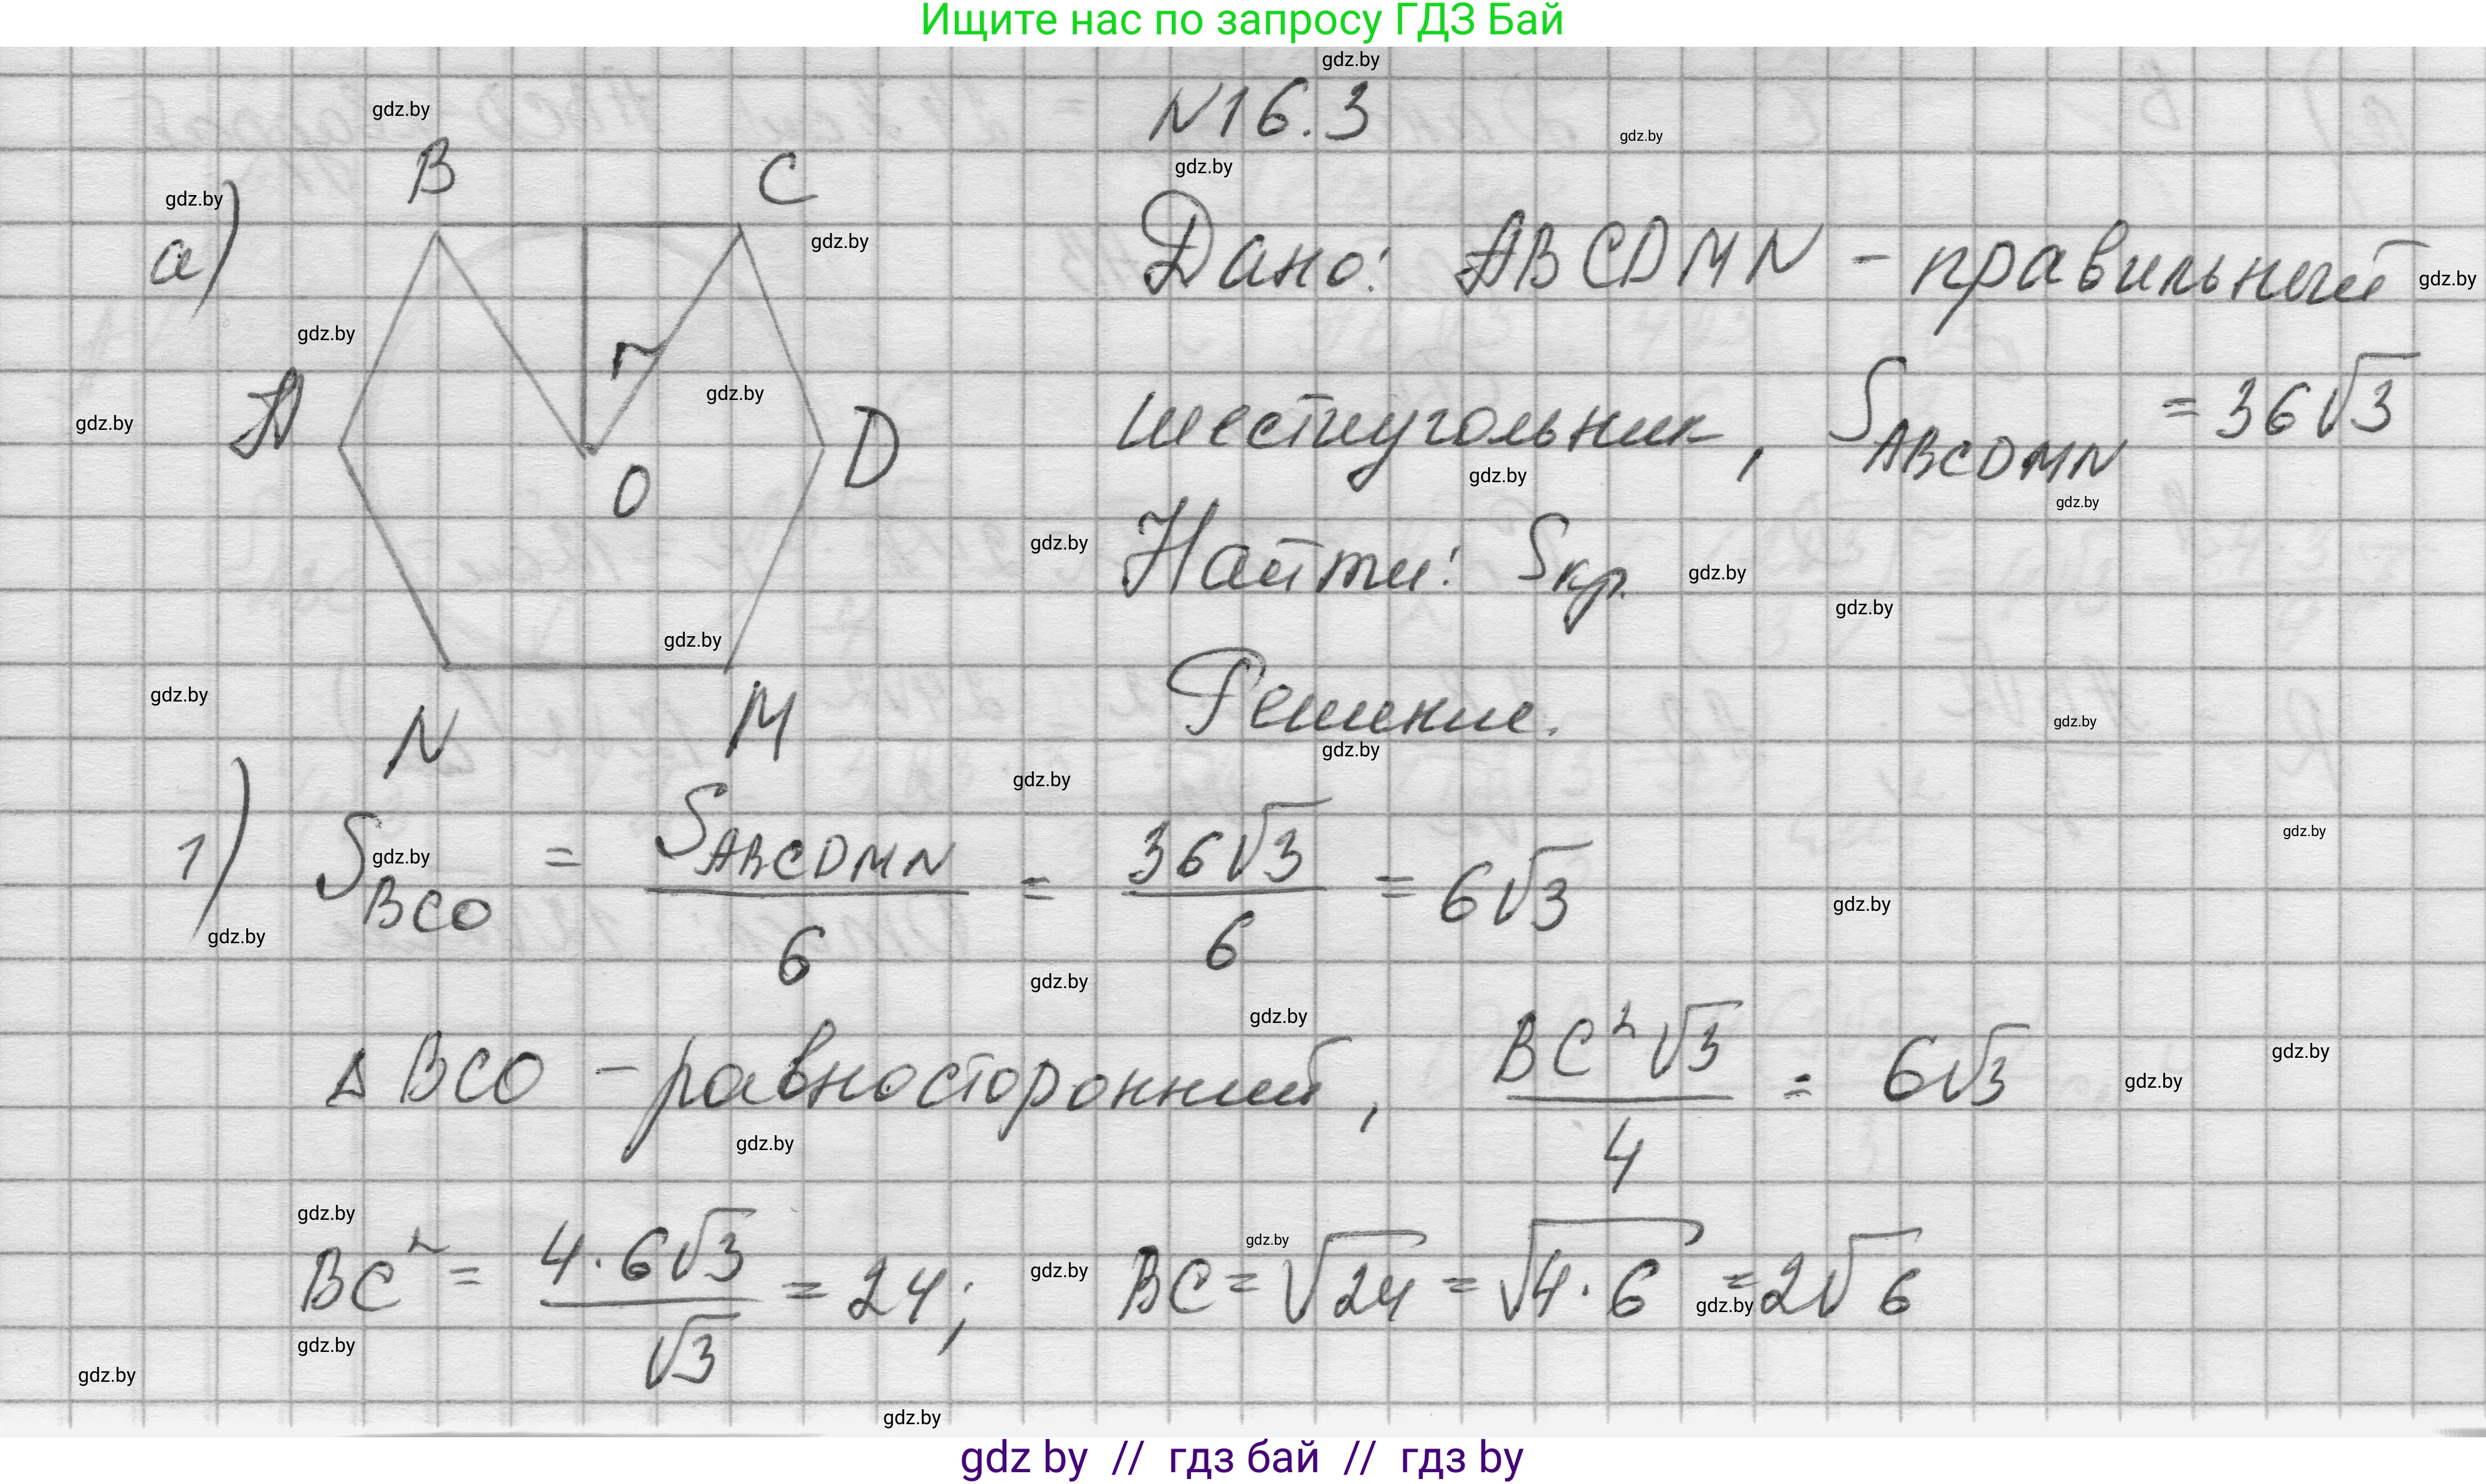 Ищите нас по запросу ГДЗ Бай
N16.3
а)
B C
Дано: ABCDMN - правильный
A r D
O
шестиугольник, S_ABCDMN = 36√3
Найти: Sкр.
N M
Решение.
1) S_BCO = S_ABCDMN / 6 = 36√3 / 6 = 6√3
Δ BCO - равносторонний, BC²√3 / 4 = 6√3
BC² = 4·6√3 / √3 = 24; BC = √24 = √4·6 = 2√6
gdz.by
gdz by // гдз бай // гдз by